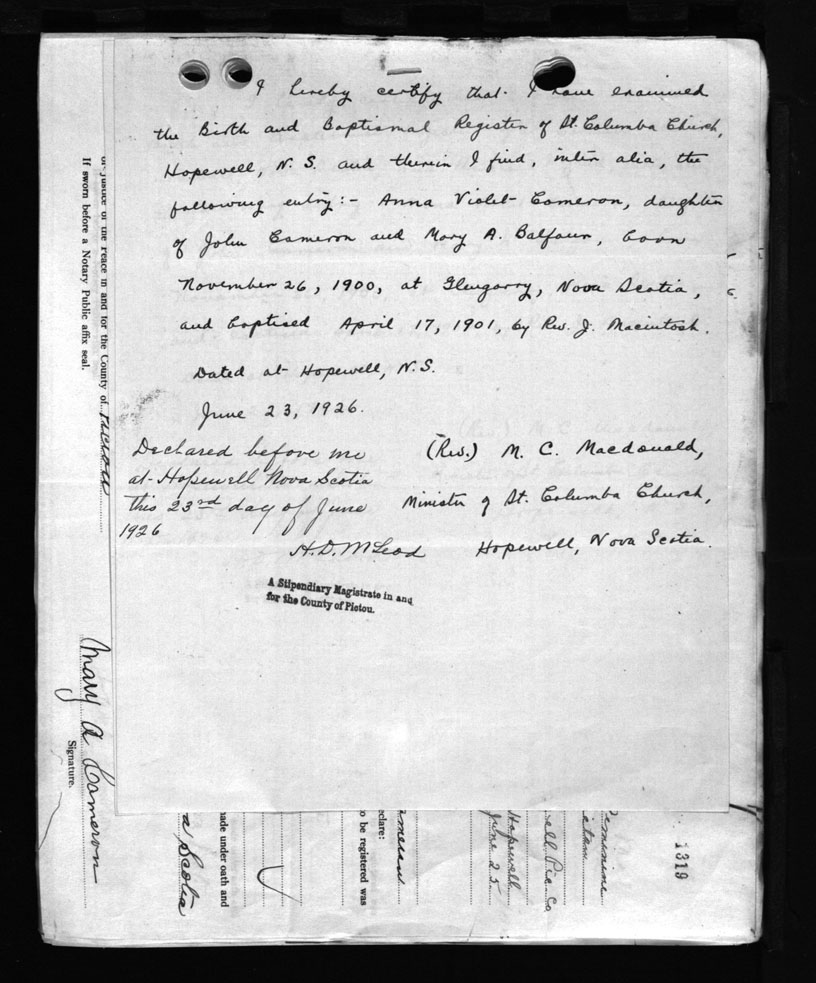 I hereby certify that I have examined
the Birth and Baptismal Register of St. Columba Church,
Hopewell, N. S. and therein I find, inter alia, the
following entry:- Anna Violet Cameron, daughter
of John Cameron and Mary A. Balfour, born
November 26, 1900, at Glengarry, Nova Scotia,
and baptised April 17, 1901, by Rev. J. Macintosh.
Dated at Hopewell, N.S.
June 23, 1926.
(Rev.) M. C. Macdonald,
Minister of St. Columba Church,
Hopewell, Nova Scotia.
Declared before me
at Hopewell Nova Scotia
this 23rd day of June
1926
H. D. McLeod
A Stipendiary Magistrate in and
for the County of Pictou.
or Justice of the Peace in and for the County of Pictou
If sworn before a Notary Public affix seal.
Mary A Cameron
Signature.
a Scotia
made under oath and
o be registered was
eclare:
ameron
June 25
Hopewell
ell Pic. Co
Feminine
1319